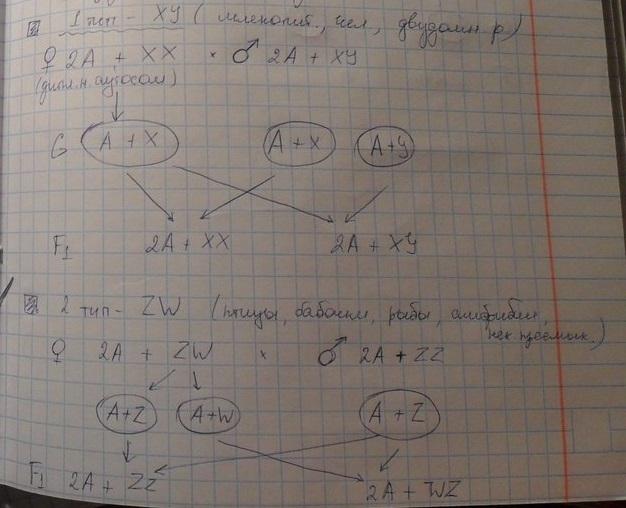 1 тип – XY (млекопит., чел, двудомн. р.)
♀ 2A + XX × ♂ 2A + XY
(дипл. н. аутосом)
G A + X A + X A + Y
F1 2A + XX 2A + XY
2 тип – ZW (птицы, бабочки, рыбы, амфибии,
нек. насеком.)
♀ 2A + ZW × ♂ 2A + ZZ
A+Z A+W A + Z
F1 2A + ZZ 2A + WZ